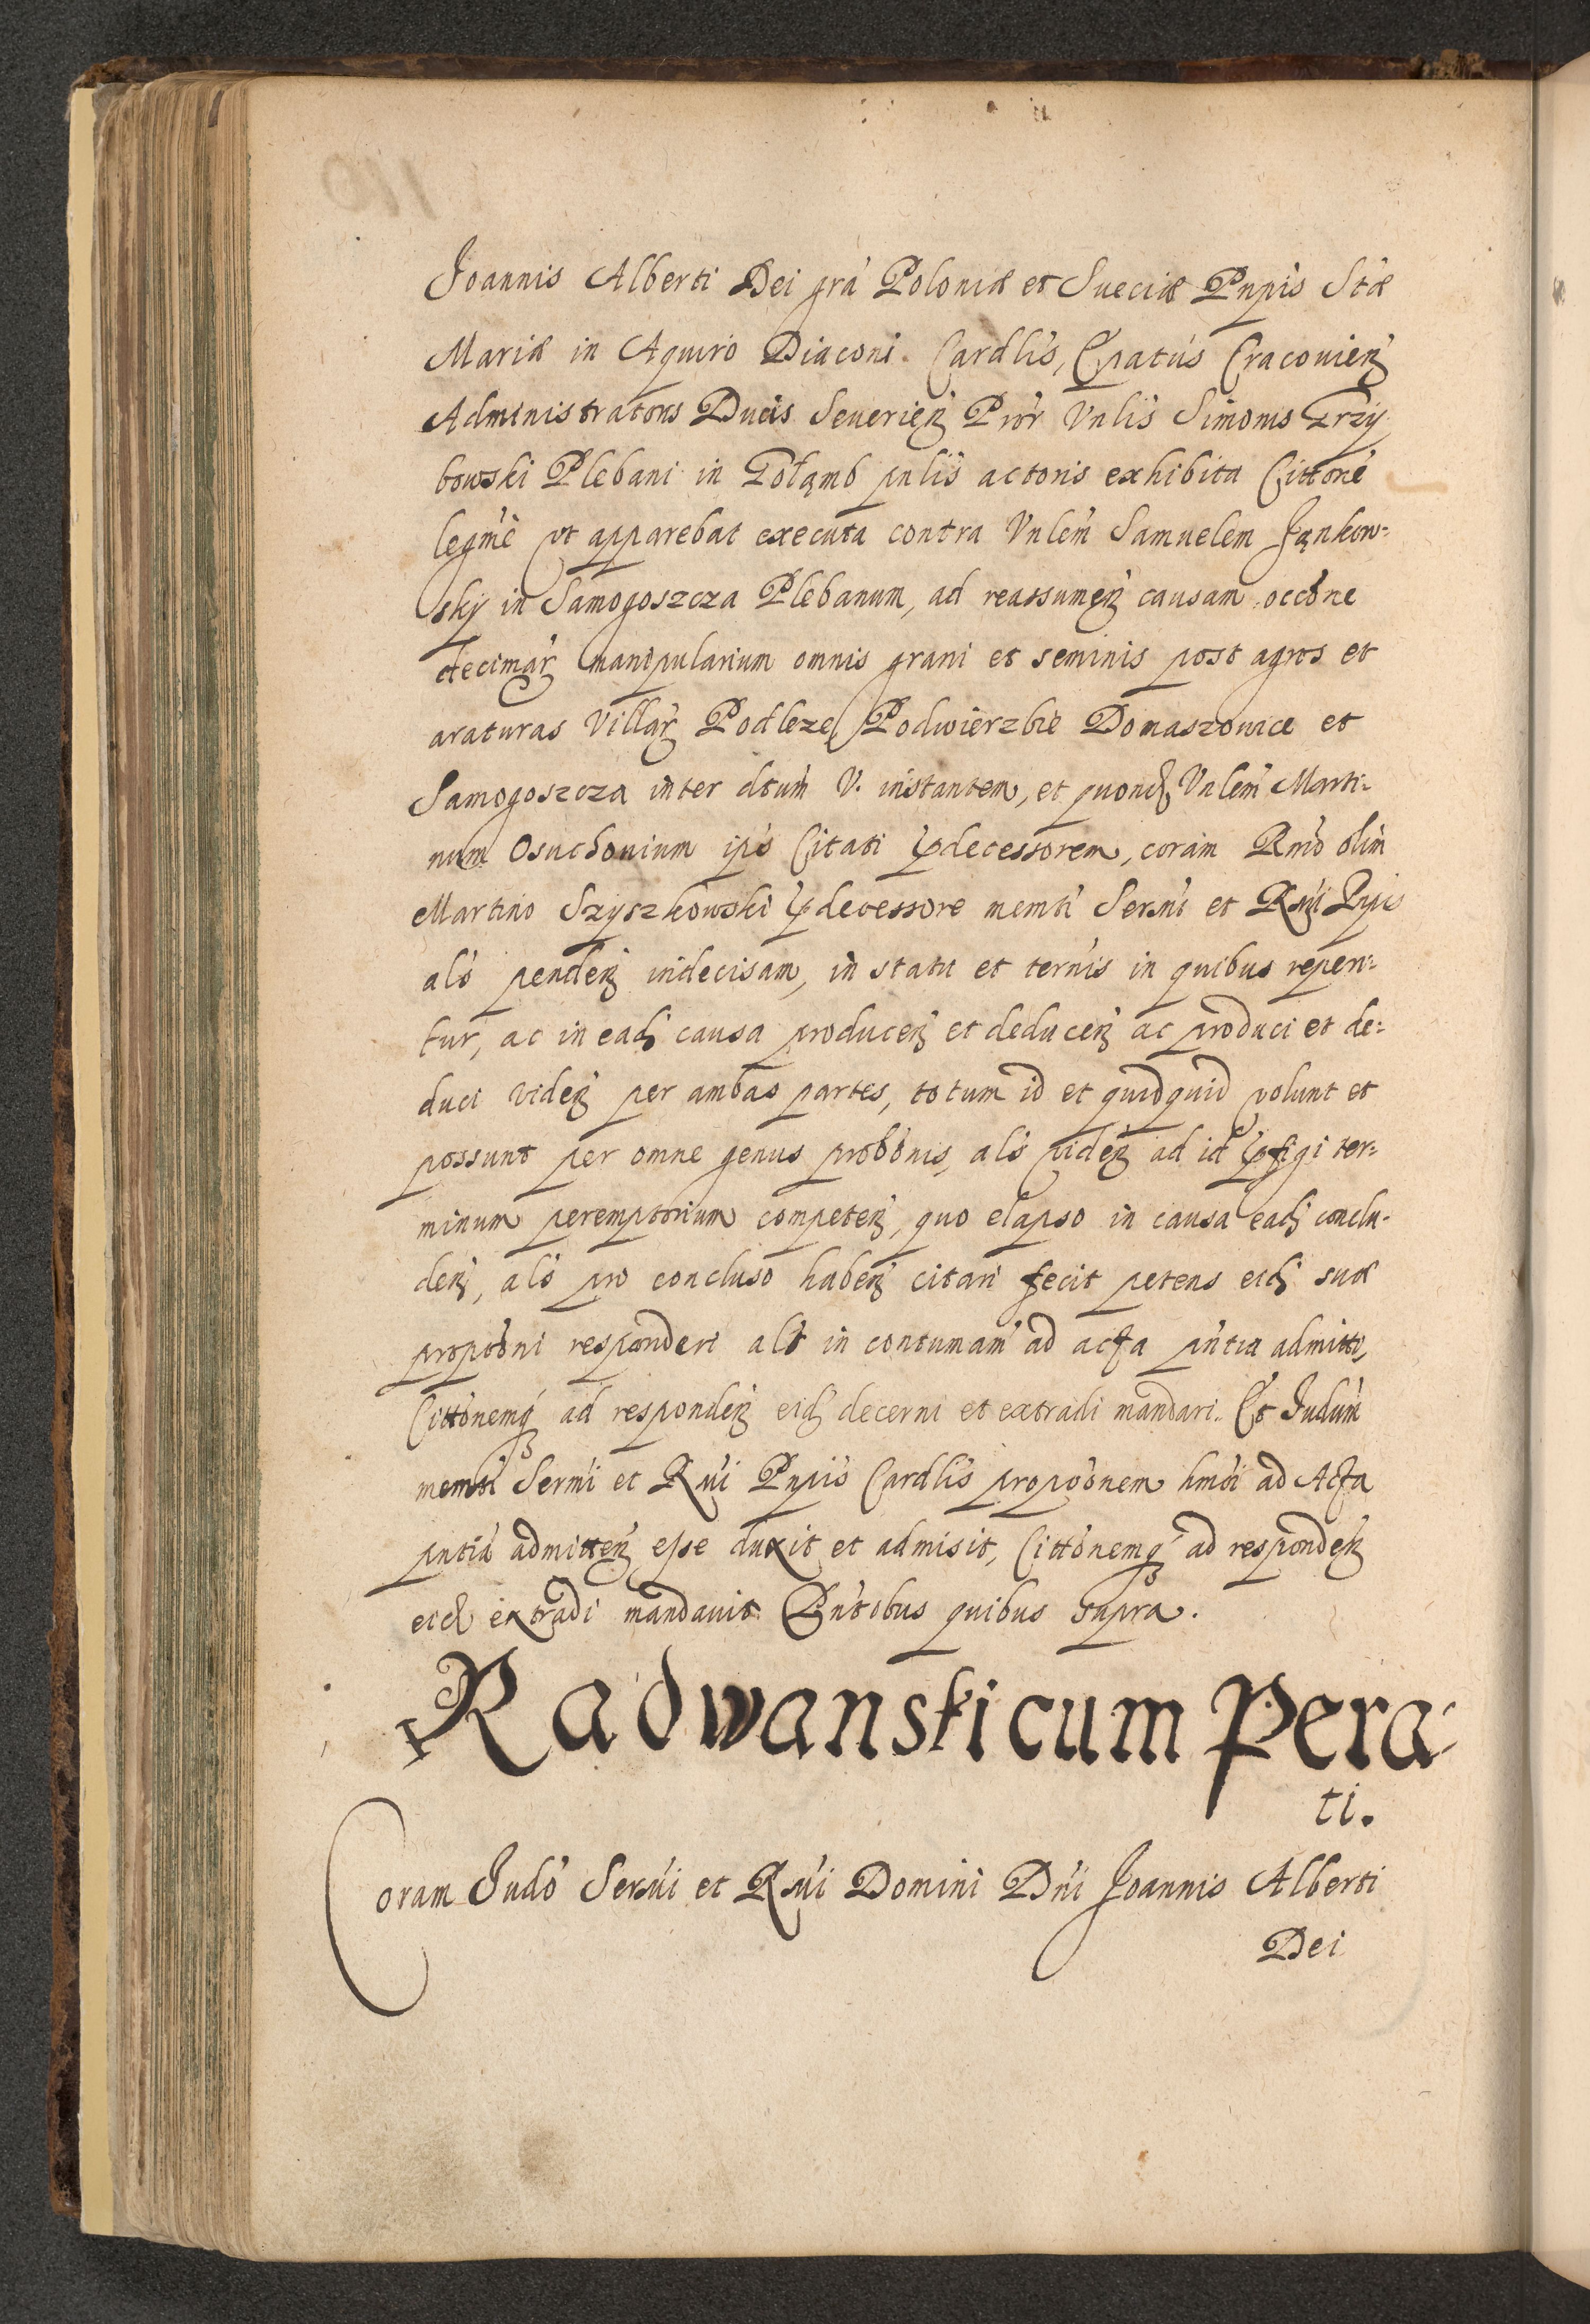 Joannis Alberti Dei grá Poloniæ et Sueciæ Pnpis Stæ
Mariæ in Aquiro Diaconi Cardlis, Epatus Cracouien
Administratoris Ducis Seuerien Pror Vnlis Simonis Grzy
bowski Plebani in Gołąmb pnlis actoris exhibita Cittone
legme vt apparebat executa contra Vnlem Samuelem Jankow:
sky in Samogoszcza Plebanum, ad reassumen causam occone
decimar manipularium omnis grani et seminis post agros et
araturas Villar Podleze Podwierzbie Domaszowice et
Samogoszcza inter dtum V. instantem, et quond Vnlem Marti:
num Osuchouium ips Citati prdecessorem, coram Rmo olim
Martino Szyszkowski prdecessore memti Sermi et Rmi Pnpis
als penden indecisam, in statu et ternis in quibus reperi:
tur, ac in ead causa producen et deducen ac produci et de:
duci viden per ambas partes, totum id et quidquid volunt et
possunt per omne genus probonis, als viden ad id prfigi ter:
minum peremptorium competen, quo elapso in causa ead conclu:
den, als pro concluso haben citari fecit petens eid suæ
propoōni responderi als in contumam ad acta pntia admitti,
Cittonemq ad responden eid decerni et extradi mandari. Et Judum
memti Sermi et Rmi Pnpis Cardlis propoōnem hmoi ad Acta
pntia admitten esse duxit et admisit, Cittonemq ad responden
eid extradi mandauit. Pntobus quibus supra.
Radwanski cum Pera:
ti.
Coram Judo Sermi et Rmi Domini Dni Joannis Alberti
Dei